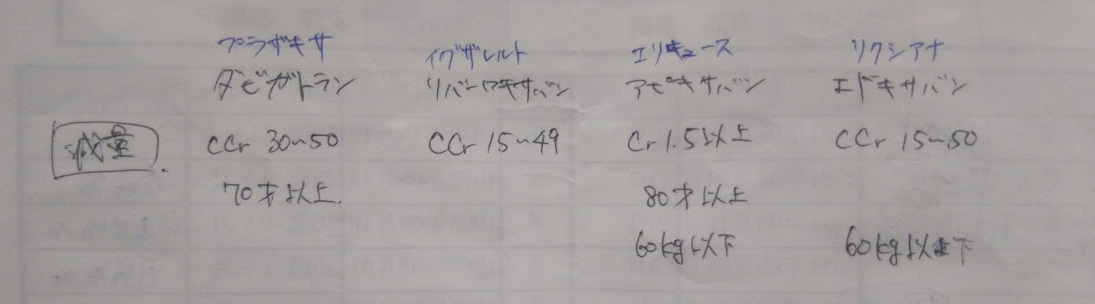 プラザキサ イグザレルト エリキュース リクシアナ
ダビガトラン リバーロキサバン アピキサバン エドキサバン
減量 CCr 30~50 CCr 15~49 Cr 1.5以上 CCr 15~50
70才以上. 80才以上
60kg以下 60kg以下